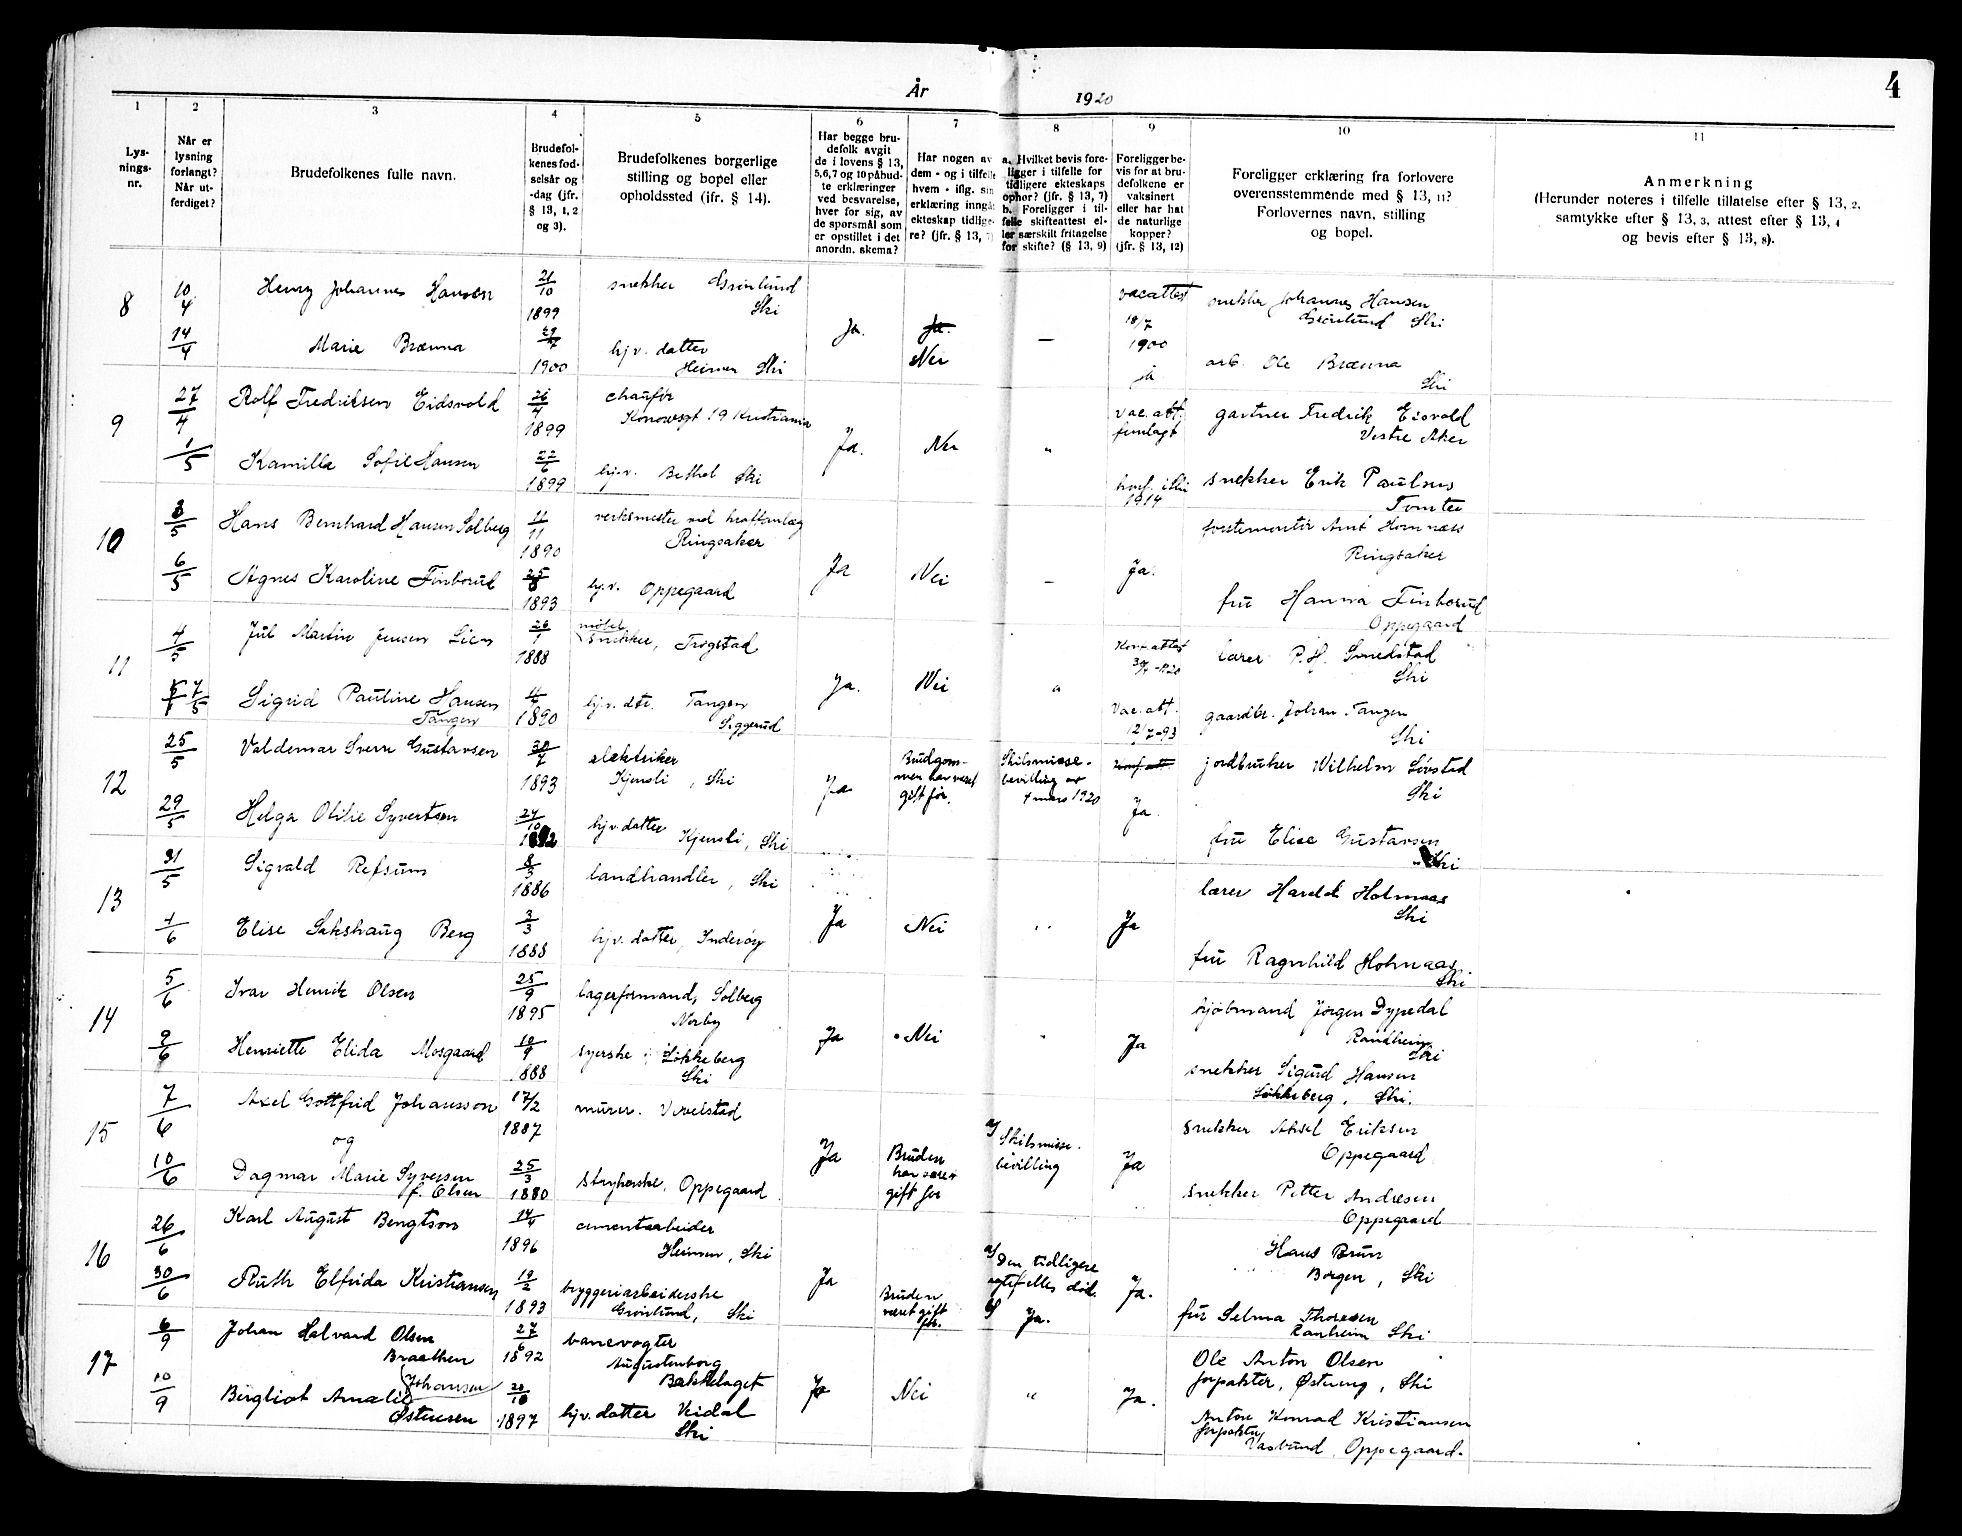 År 1920
4
1 2 3 4 5 6 7 8 9 10 11
Lys-
nings-
nr.
Når er
lysning
forlangt?
Når ut-
ferdiget?
Brudefolkenes fulle navn.
Brudefol-
kenes fød-
selsår og
-dag (jfr.
§ 13, 1, 2
og 3).
Brudefolkenes borgerlige
stilling og bopel eller
opholdssted (jfr. § 14).
Har begge bru-
defolk avgit
de i lovens § 13,
5,6,7 og 10 påbud-
te erklæringer
ved besvarelse,
hver for sig, av
de spørsmål som
er opstillet i det
anordn. skema?
Har nogen av
dem - og i tilfelle
hvem - iflg. sin
erklæring inngå
ekteskap tidlige-
re? (jfr. § 13, 7)
a. Hvilket bevis fore-
ligger i tilfelle for
tidligere ekteskaps
ophør? (jfr. § 13, 7)
b. Foreligger i til-
felle skifteattest el-
ler særskilt fritagelse
for skifte? (§ 13, 9)
Foreligger be-
vis for at bru-
defolkene er
vaksinert
eller har hat
de naturlige
kopper?
(jfr. § 13, 12)
Foreligger erklæring fra forlovere
overensstemmende med § 13, 11?
Forlovernes navn, stilling
og bopel.
Anmerkning
(Herunder noteres i tilfelle tillatelse efter § 13, 2,
samtykke efter § 13, 3, attest efter § 13, 4
og bevis efter § 13, 8).
8
10/4
Henry Johannes Hansen
21/10
1899
snekker Grønlund
Ski
vacattest
18/7
1900
snekker Johannes Hansen
Grønlund Ski
14/4
Marie Brænna
1900
hjv. datter
Heimen Ski
Ja.
Ja.
Nei
—
ja
arb. Ole Brænna
Ski
9
27/4
Rolf Fredriksen Eidsvold
26/4
1899
chaufør
Konowsgt 19 Kristiania
Ja.
Nei
"
vac. att.
fremlagt
gartner Fredrik Eidsvold
Vestre Aker
1/5
Kamilla Sofie Hansen
22/6
1899
hjv. Bethel Ski
konf. i Ski
1914
snekker Erik Paulsen
Tomter
10
3/5
Hans Bernhard Hansen Solberg
11/11
1890
verksmester ved kraftanlæg
Ringsaker
Ringsaker
6/5
Agnes Karoline Finborud
25/8
1893
hjv. Oppegaard
Ja
Nei
—
Ja.
fru Hanna Finborud
Oppegaard
11
4/5
Jul Martin Jensen Lien
26/1
1888
møbel
snekker, Trøgstad
Konf attest
lærer P.H. Smedstad
Ski
7/5
Sigrid Pauline Hansen
Tangen
1890
hjv. dtr. Tangen
Siggerud
Ja.
Nei
"
Vac. att.
12/7-93
gaardbr. Johan Tangen
Ski
12
25/5
Valdemar Sverre Gustavsen
30/7
1893
elektriker
Kjensli, Ski
Ja
Brudgom-
men har været
gift før.
Skilsmisse-
bevilling av
4 mars 1920
jordbruker Wilhelm Sivstad
Ski
29/5
Helga Otilie Syvertsen
24/10
hjv. datter
Kjensli, Ski
Ja.
fru Elise Gustavsen
Ski
13
31/5
Sigvald Refsum
1886
landhandler, Ski
lærer Harald Holmaas
Ski
1/6
Elise Sakshaug Berg
3/3
1888
hjv. datter, Inderøy
Ja
Nei
Ja
fru Ragnhild Holmaas
Ski
14
5/6
Ivar Henrik Olsen
25/9
1895
lagerformand, Solberg
Nerby
kjøbmand Jørgen Dypedal
Randheim
Ski
9/6
Henriette Elida Mosgaard
10/9
1888
syerske, Løkkeberg
Ski
Ja
Nei
Ja
snekker Sigurd Hansen
Løkkeberg, Ski.
15
7/6
Axel Gottfrid Johansson
og
17/2
1887
murer. Vevelstad
snekker Aksel Eriksen
Oppegaard
10/6
Dagmar Marie Syversen
f. Olsen
25/3
1880
strykerske, Oppegaard
Ja
Bruden
har været
gift før
a) Skilsmisse-
bevilling
Ja
snekker Petter Andresen
Oppegaard
16
26/6
Karl August Bengtson
14/4
1896
cementarbeider
Heimen, Ski
Hans Brun
Borgen, Ski
30/6
Ruth Elfrida Kristiansen
19/2
1893
bryggeriarbeiderske
Grønlund, Ski
Ja
Bruden
været gift
før.
a) Den tidligere
ægtefelles död.
b) Ja.
Ja.
fru Selma Thoresen
Ranheim Ski
17
6/9
Johan Halvard Olsen
Braathen
27/6
1892
banevogter
Augustenborg
Bækkelaget
Ole Anton Olsen
forpakter, Østeng, Ski
10/9
Bergliot Amalie Johansen
Østensen
20/10
1897
hjv. datter Veidal
Ski
Ja
Nei
"
Ja.
Anton Konrad Kristiansen
forpakter
Vasbund, Oppegaard.